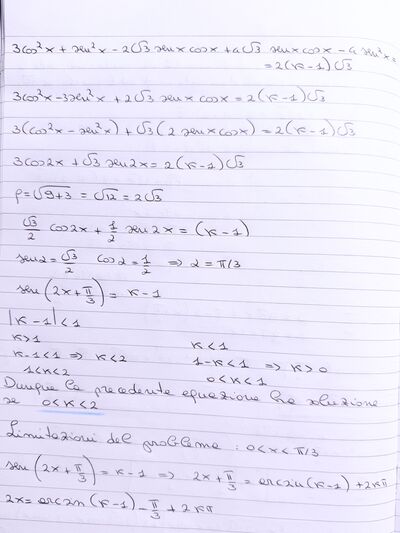 3cos²x + sen²x - 2√3 senx cosx + 4√3 senx cosx - 4 sen²x =
= 2(k-1)√3
3cos²x - 3sen²x + 2√3 senx cosx = 2(k-1)√3
3(cos²x - sen²x) + √3 (2 senx cosx) = 2(k-1)√3
3cos2x + √3 sen2x = 2(k-1)√3
ρ = √9+3 = √12 = 2√3
√3/2 cos2x + 1/2 sen2x = (k-1)
sen2 = √3/2 cos2 = 1/2 ⇒ 2 = π/3
sen(2x + π/3) = k-1
|k-1| < 1
k>1 k<1
k-1<1 ⇒ k<2 1-k<1 ⇒ k>0
1<k<2 0<k<1
Dunque la precedente equazione ha soluzione
se 0<k<2
Limitazioni del problema : 0<x<π/3
sen(2x + π/3) = k-1 ⇒ 2x + π/3 = arcsin(k-1) + 2kπ
2x = arcsin(k-1) - π/3 + 2kπ